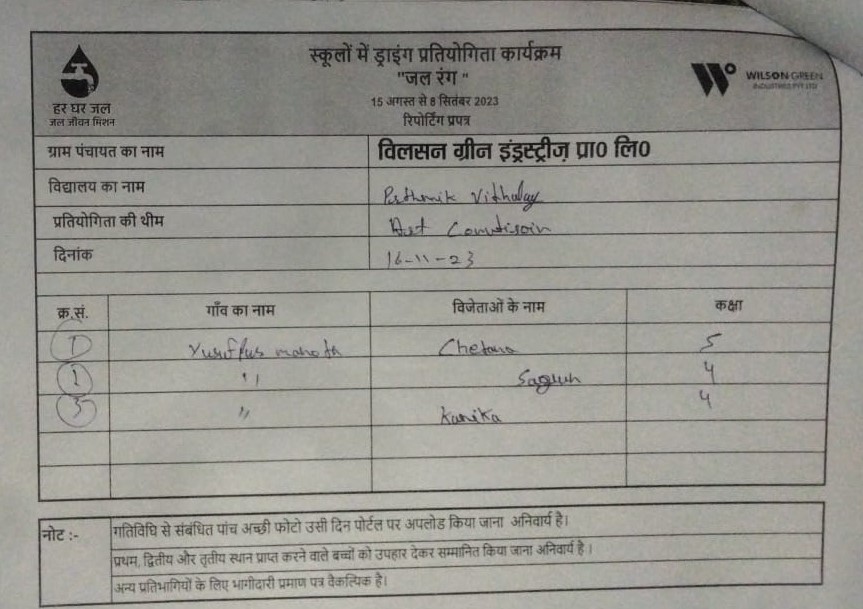 स्कूलों में ड्राइंग प्रतियोगिता कार्यक्रम
"जल रंग"
15 अगस्त से 8 सितंबर 2023
रिपोर्टिंग प्रपत्र
हर घर जल
जल जीवन मिशन
WILSON GREEN
INDUSTRIES PVT LTD
ग्राम पंचायत का नाम विलसन ग्रीन इंड्रस्ट्रीज़ प्रा0 लि0
विद्यालय का नाम
प्रतियोगिता की थीम Art
दिनांक 16-11-23
क्र.सं. गाँव का नाम विजेताओं के नाम कक्षा
1 Chetana 5
" Sagun 4
3 " Kanika 4
नोट :- गतिविधि से संबंधित पांच अच्छी फोटो उसी दिन पोर्टल पर अपलोड किया जाना अनिवार्य है।
प्रथम, द्वितीय और तृतीय स्थान प्राप्त करने वाले बच्चों को उपहार देकर सम्मानित किया जाना अनिवार्य है।
अन्य प्रतिभागियों के लिए भागीदारी प्रमाण पत्र वैकल्पिक है।